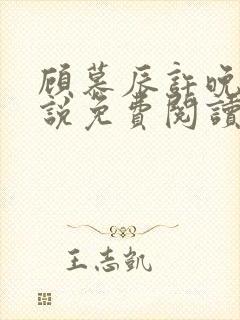 顾慕辰許晚
説免費閱讀
王志凱